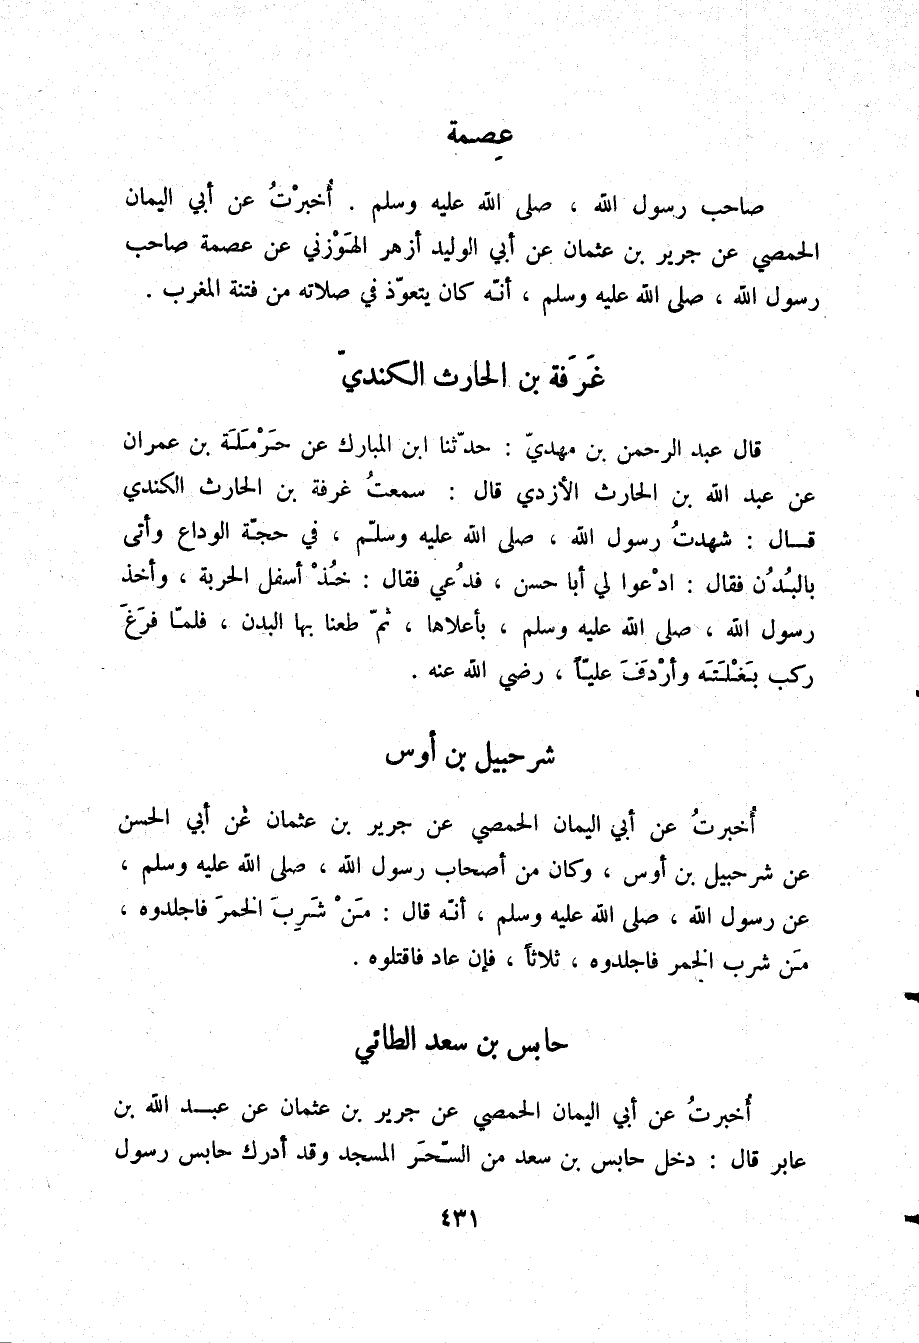 عِصمة
صاحب رسول الله ، صلى الله عليه وسلم . أُخبرْتُ عن أبي اليمان
الحمصي عن جرير بن عثمان عن أبي الوليد أزهر الهَوْزني عن عصمة صاحب
رسول الله ، صلى الله عليه وسلم ، أنّه كان يتعوّذ في صلاته من فتنة المغرب .
غَرَفة بن الحارث الكنديّ
قال عبد الرحمن بن مهديّ : حدّثنا ابن المبارك عن حَرْمَلَة بن عمران
عن عبد الله بن الحارث الأزدي قال : سمعتُ غرفة بن الحارث الكندي
قــال : شهدتُ رسول الله ، صلى الله عليه وسلّم ، في حجّة الوداع وأتى
بالبُدُن فقال : ادْعوا لي أبا حسن ، فدُعي فقال : خُذْ أسفل الحربة ، وأخذ
رسول الله ، صلى الله عليه وسلم ، بأعلاها ، ثمّ طعنا بها البدن ، فلمّا فرَغَ
ركب بَغْلَتَه وأرْدَفَ عليّاً ، رضي الله عنه .
شرحبيل بن أوس
أُخبرتُ عن أبي اليمان الحمصي عن جرير بن عثمان عن أبي الحسن
عن شرحبيل بن أوس ، وكان من أصحاب رسول الله ، صلى الله عليه وسلم ،
عن رسول الله ، صلى الله عليه وسلم ، أنّه قال : مَنْ شَرِبَ الخمرَ فاجلدوه ،
مَن شرب الخمر فاجلدوه ، ثلاثاً ، فإن عاد فاقتلوه .
حابس بن سعد الطائي
أُخبرتُ عن أبي اليمان الحمصي عن جرير بن عثمان عن عبــد الله بن
عابر قال : دخل حابس بن سعد من السّحَر المسجد وقد أدرك حابس رسول
٤٣١